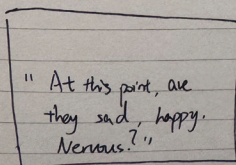 "At this point, are
they sad, happy.
Nervous?"